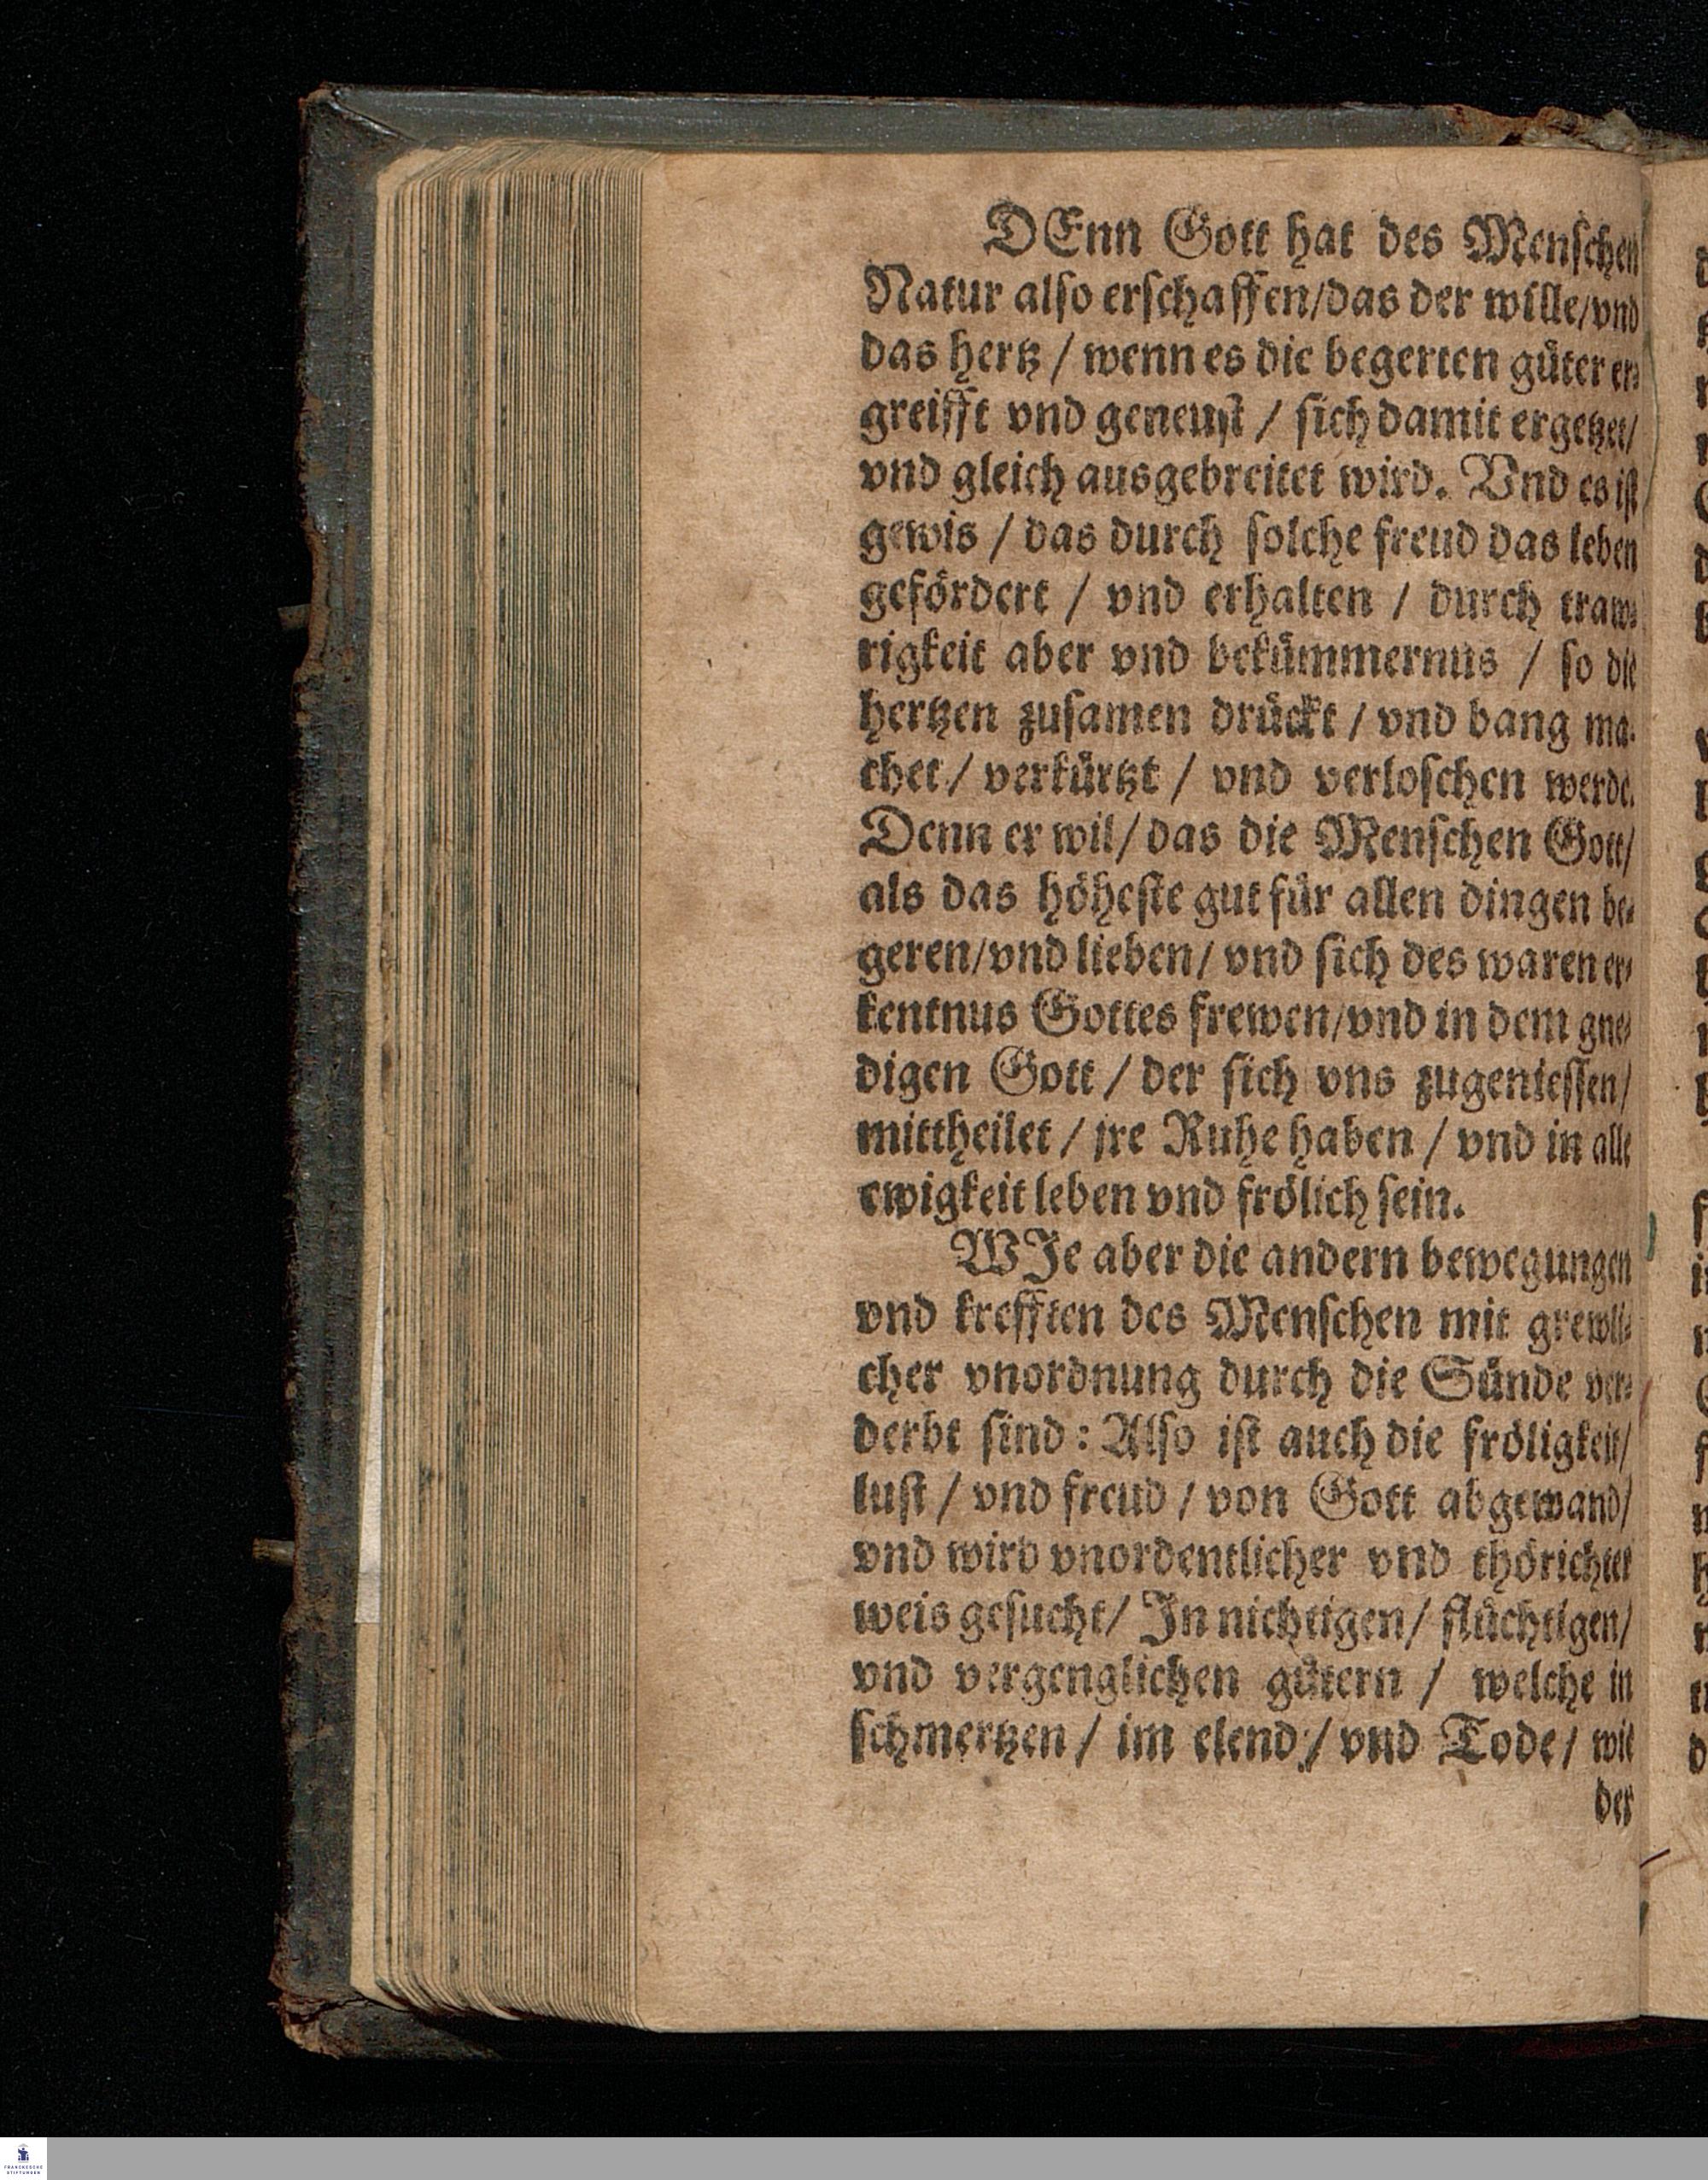 DEnn Gott hat des Menschen
Natur also erschaffen/das der wille/vnd
das hertz / wenn es die begerten güter er-
greifft vnd geneust / sich damit ergetzet/
vnd gleich ausgebreitet wird. Vnd es ist
gewis / das durch solche freud das leben
gefördert / vnd erhalten / durch traw-
rigkeit aber vnd bekümmernus / so die
hertzen zusamen drückt / vnd bang ma-
chet / verkürtzt / vnd verloschen werde.
Denn er wil/ das die Menschen Gott/
als das höheste gut für allen dingen be-
geren/vnd lieben/ vnd sich des waren er-
kentnus Gottes frewen/vnd in dem gne-
digen Gott / der sich vns zugeniessen/
mittheilet / jre Ruhe haben / vnd in alle
ewigkeit leben vnd frölich sein.
WJe aber die andern bewegungen
vnd krefften des Menschen mit grewli-
cher vnordnung durch die Sünde ver-
derbt sind: Also ist auch die fröligkeit/
lust / vnd freud / von Gott abgewand/
vnd wird vnordentlicher vnd thörichter
weis gesucht/ Jn nichtigen/ flüchtigen/
vnd vergenglichen gütern / welche in
schmertzen / im elend / vnd Tode / wie
der
FRANCKESCHE
STIFTUNGEN